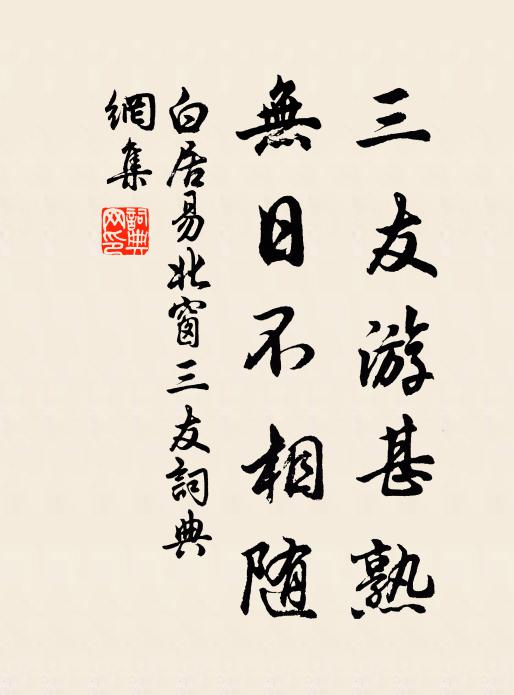 三友游甚熟
無日不相随
白居易北窗三友詞典
網集
詞典網印